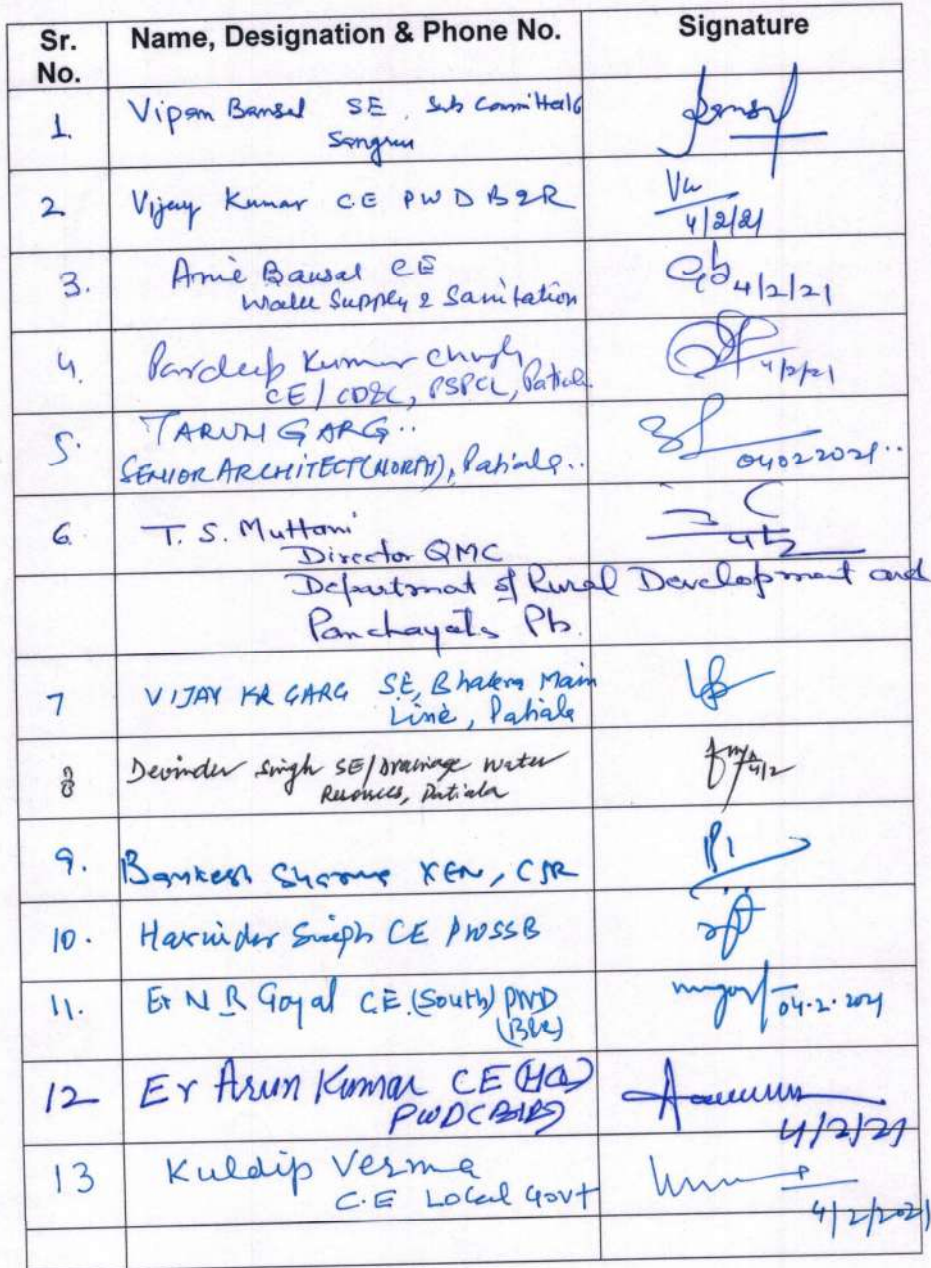 Sr. No. Name, Designation & Phone No. Signature
1. Vipan Bansal SE, Sub Committee
Sangrur
2 Vijay Kumar CE PWD B&R
4/2/21
3. Bansal CE
Water Supply & Sanitation 4/2/21
4. Pardeep Kumar
CE/ PSPCL, Patiala 4/2/21
5. TARUN GARG..
SENIOR ARCHITECT(NORTH), Patiala.. 04022021..
6 T. S.
Director QMC 4/2
Department of Rural Development and
Panchayats Pb.
7 VIJAY KR GARG SE, Bhakra Main
Line, Patiala
8 Devinder Singh SE/Drainage Water 4/2
Resources, Patiala
9. Sharma XEN,
10. Harinder Singh CE PWSSB
11. Er N R Goyal CE.(South) PWD 04.2.2021
(B&R)
12 Er Arun Kumar CE (HQ)
PWD(B&R) 4/2/21
13 Kuldip Verma
C.E Local Govt 4/2/2021